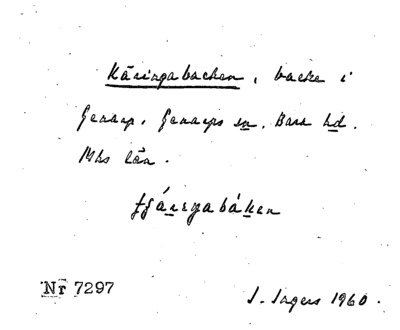 Käringabacken, backe i
Genarp, Genarps sn. Bara hd.
Mhs län.
Nr 7297
J. Ingers 1960.